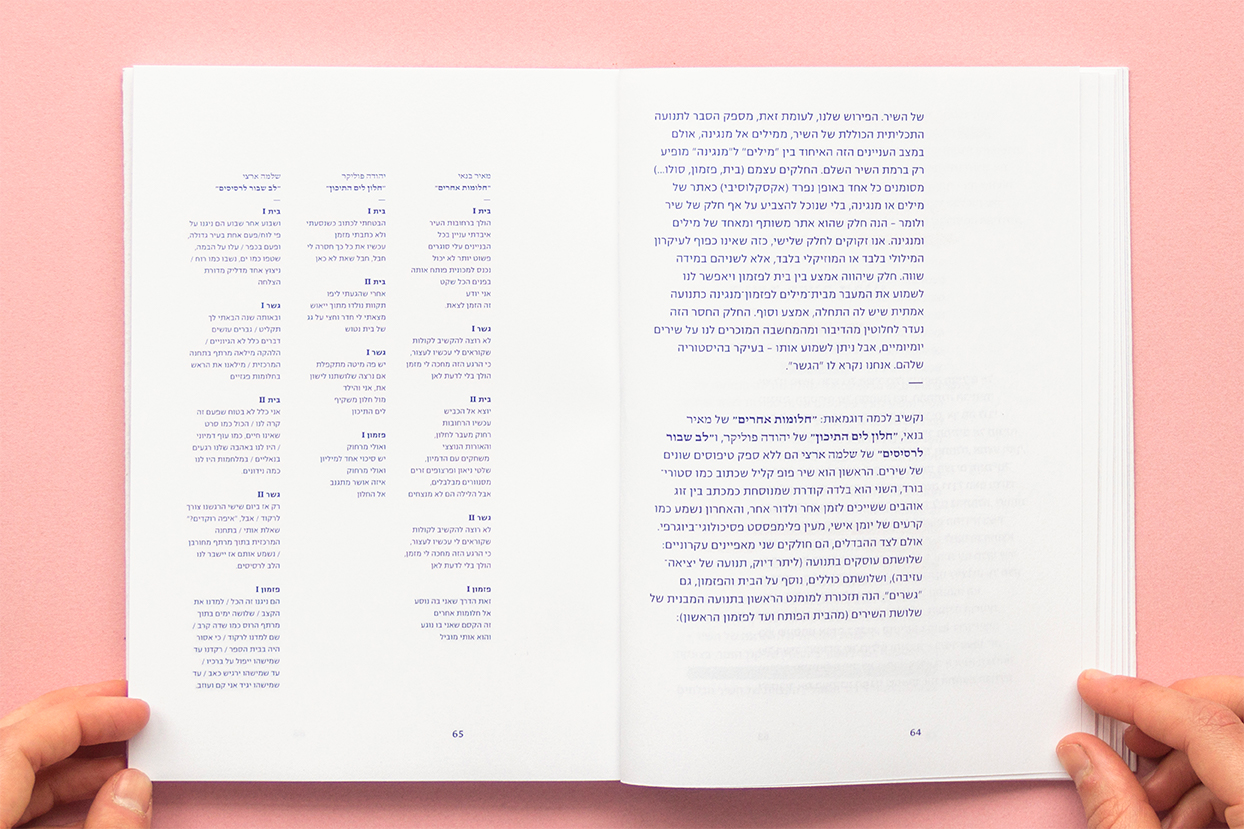 של השיר. הפירוש שלנו, לעומת זאת, מספק הסבר לתנועה
התכליתית הכוללת של השיר, ממילים אל מנגינה, אולם
במצב העניינים הזה האיחוד בין "מילים" ל"מנגינה" מופיע
רק ברמת השיר השלם. החלקים עצמם (בית, פזמון, סולו...)
מסומנים כל אחד באופן נפרד (אקסקלוסיבי) כאתר של
מילים או מנגינה, בלי שנוכל להצביע על אף חלק של שיר
ולומר – הנה חלק שהוא אתר משותף ומאחד של מילים
ומנגינה. אנו זקוקים לחלק שלישי, כזה שאינו כפוף לעיקרון
המילולי בלבד או המוזיקלי בלבד, אלא לשניהם במידה
שווה. חלק שיהווה אמצע בין בית לפזמון ויאפשר לנו
לשמוע את המעבר מבית־מילים לפזמון־מנגינה כתנועה
אמתית שיש לה התחלה, אמצע וסוף. החלק החסר הזה
נעדר לחלוטין מהדיבור ומהמחשבה המוכרים לנו על שירים
יומיומיים, אבל ניתן לשמוע אותו – בעיקר בהיסטוריה
שלהם. אנחנו נקרא לו "הגשר".
—
נקשיב לכמה דוגמאות: "חלומות אחרים" של מאיר
בנאי, "חלון לים התיכון" של יהודה פוליקר, ו"לב שבור
לרסיסים" של שלמה ארצי הם ללא ספק טיפוסים שונים
של שירים. הראשון הוא שיר פופ קליל שכתוב כמו סטורי־
בורד, השני הוא בלדה קודרת שמנוסחת כמכתב בין זוג
אוהבים ששייכים לזמן אחר ולדור אחר, והאחרון נשמע כמו
קרעים של יומן אישי, מעין פלימפססט פסיכולוגי־ביוגרפי.
אולם לצד ההבדלים, הם חולקים שני מאפיינים עקרוניים:
שלושתם עוסקים בתנועה (ליתר דיוק, תנועה של יציאה־
עזיבה), ושלושתם כוללים, נוסף על הבית והפזמון, גם
"גשרים". הנה תזכורת למומנט הראשון בתנועה המבנית של
שלושת השירים (מהבית הפותח ועד לפזמון הראשון):
64
מאיר בנאי
"חלומות אחרים"
—
בית I
הולך ברחובות העיר
איבדתי עניין בכל
הבניינים עלי סוגרים
פשוט יותר לא יכול
נכנס למכונית פותח אותה
בפנים הכל שקט
אני יודע
זה הזמן לצאת.
גשר I
לא רוצה להקשיב לקולות
שקוראים לי עכשיו לעצור,
כי הרגע הזה מחכה לי מזמן
הולך בלי לדעת לאן
בית II
יוצא אל הכביש
עכשיו הרחובות
רחוק מעבר לחלון,
והאורות הנוצצי
משחקים עם הדמיון,
שלטי ניאון ופרצופים זרים
מסנוורים מבלבלים,
אבל הלילה הם לא מנצחים
גשר II
לא רוצה להקשיב לקולות
שקוראים לי עכשיו לעצור,
כי הרגע הזה מחכה לי מזמן,
הולך בלי לדעת לאן
פזמון I
זאת הדרך שאני בה נוסע
אל חלומות אחרים
זה הקסם שאני בו נוגע
והוא אותי מוביל
יהודה פוליקר
"חלון לים התיכון"
—
בית I
הבטחתי לכתוב כשנסעתי
ולא כתבתי מזמן
עכשיו את כל כך חסרה לי
חבל, חבל שאת לא כאן
בית II
אחרי שהגעתי ליפו
תקוות נולדו מתוך ייאוש
מצאתי לי חדר וחצי על גג
של בית נטוש
גשר I
יש פה מיטה מתקפלת
אם נרצה שלושתנו לישון
את, אני והילד
מול חלון משקיף
לים התיכון
פזמון I
ואולי מרחוק
יש סיכוי אחד למיליון
ואולי מרחוק
איזה אושר מתגנב
אל החלון
שלמה ארצי
"לב שבור לרסיסים"
—
בית I
ושבוע אחר שבוע הם ניגנו על
פי לוח/פעם אחת בעיר גדולה,
ופעם בכפר / עלו על הבמה,
שטפו כמו ים, נשבו כמו רוח /
ניצוץ אחד מדליק מדורת
הצלחה
גשר I
ובאותה שנה הבאתי לך
תקליט / גברים עושים
דברים כלל לא הגיוניים /
הלהקה מילאה מרתף בתחנה
המרכזית / מילאנו את הראש
בחלומות פגזיים
בית II
אני כלל לא בטוח שפעם זה
קרה לנו / הכול כמו סרט
שאינו חיים, כמו עוף דמיוני
/ היו לנו באהבה שלנו רגעים
בנאליים / במלחמות היו לנו
כמה נידונים.
גשר II
רק אז ביום שישי הרגשנו צורך
לרקוד / אבל, "איפה רוקדים?"
שאלת אותי / בתחנה
המרכזית בתוך מרתף מחורבן
/ נשמע אותם אז יישבר לנו
הלב לרסיסים.
פזמון I
הם ניגנו זה הכל / למדנו את
הקצב / שלושה ימים בתוך
מרתף הרוס כמו שדה קרב /
שם למדנו לרקוד / כי אסור
היה בבית הספר / רקדנו עד
שמישהו ייפול על ברכיו /
עד שמישהו ירגיש כאב / עד
שמישהו יגיד אני קם ועוזב.
65